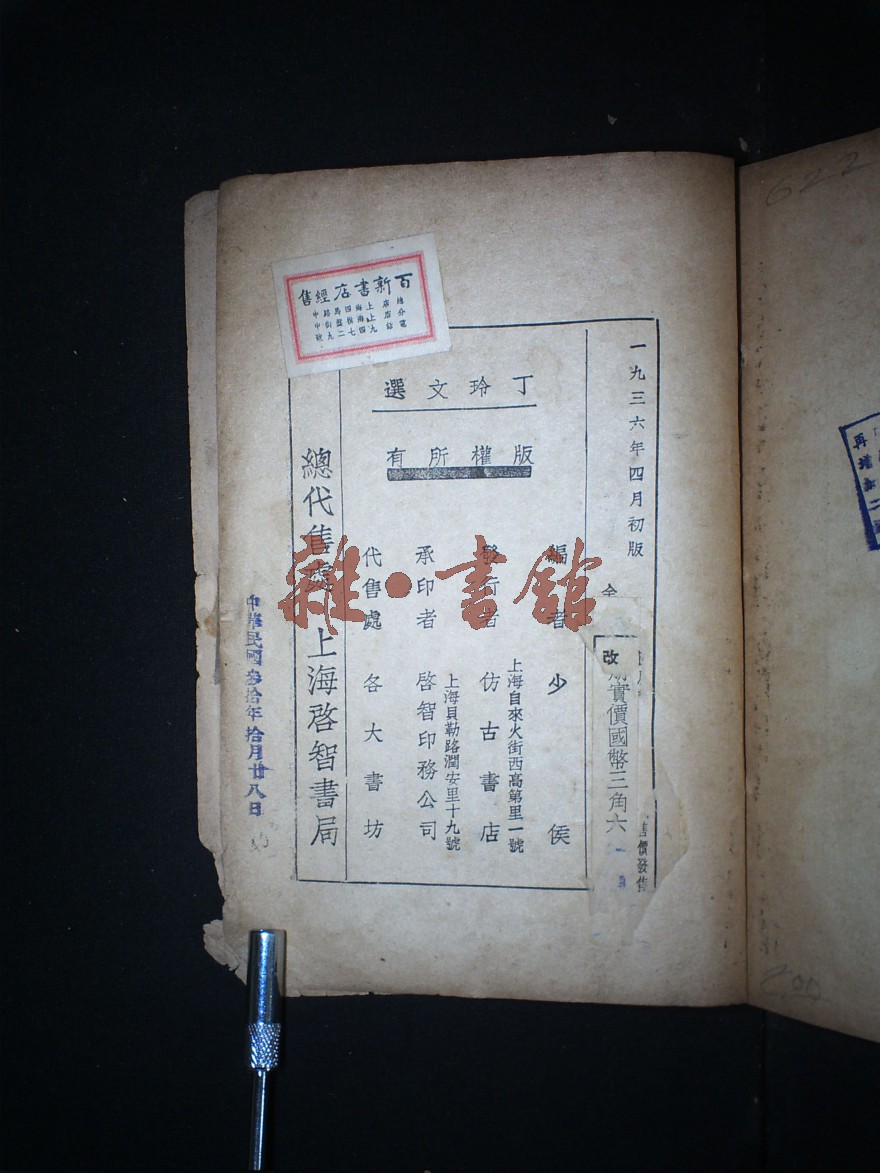 百新書店經售
總店上海四馬路中
分店上海棋盤街中
一九三六年四月初版
丁玲文選
版權所有
編者 少侯
發行者 仿古書店
上海自來火街西高第里一號
承印者 啓智印務公司
上海貝勒路潤安里十九號
代售處 各大書坊
總代售處 上海啓智書局
全
改
實價國幣三角六
售價發售
中華民國叁拾年拾月廿八日
雜·書館
622
再